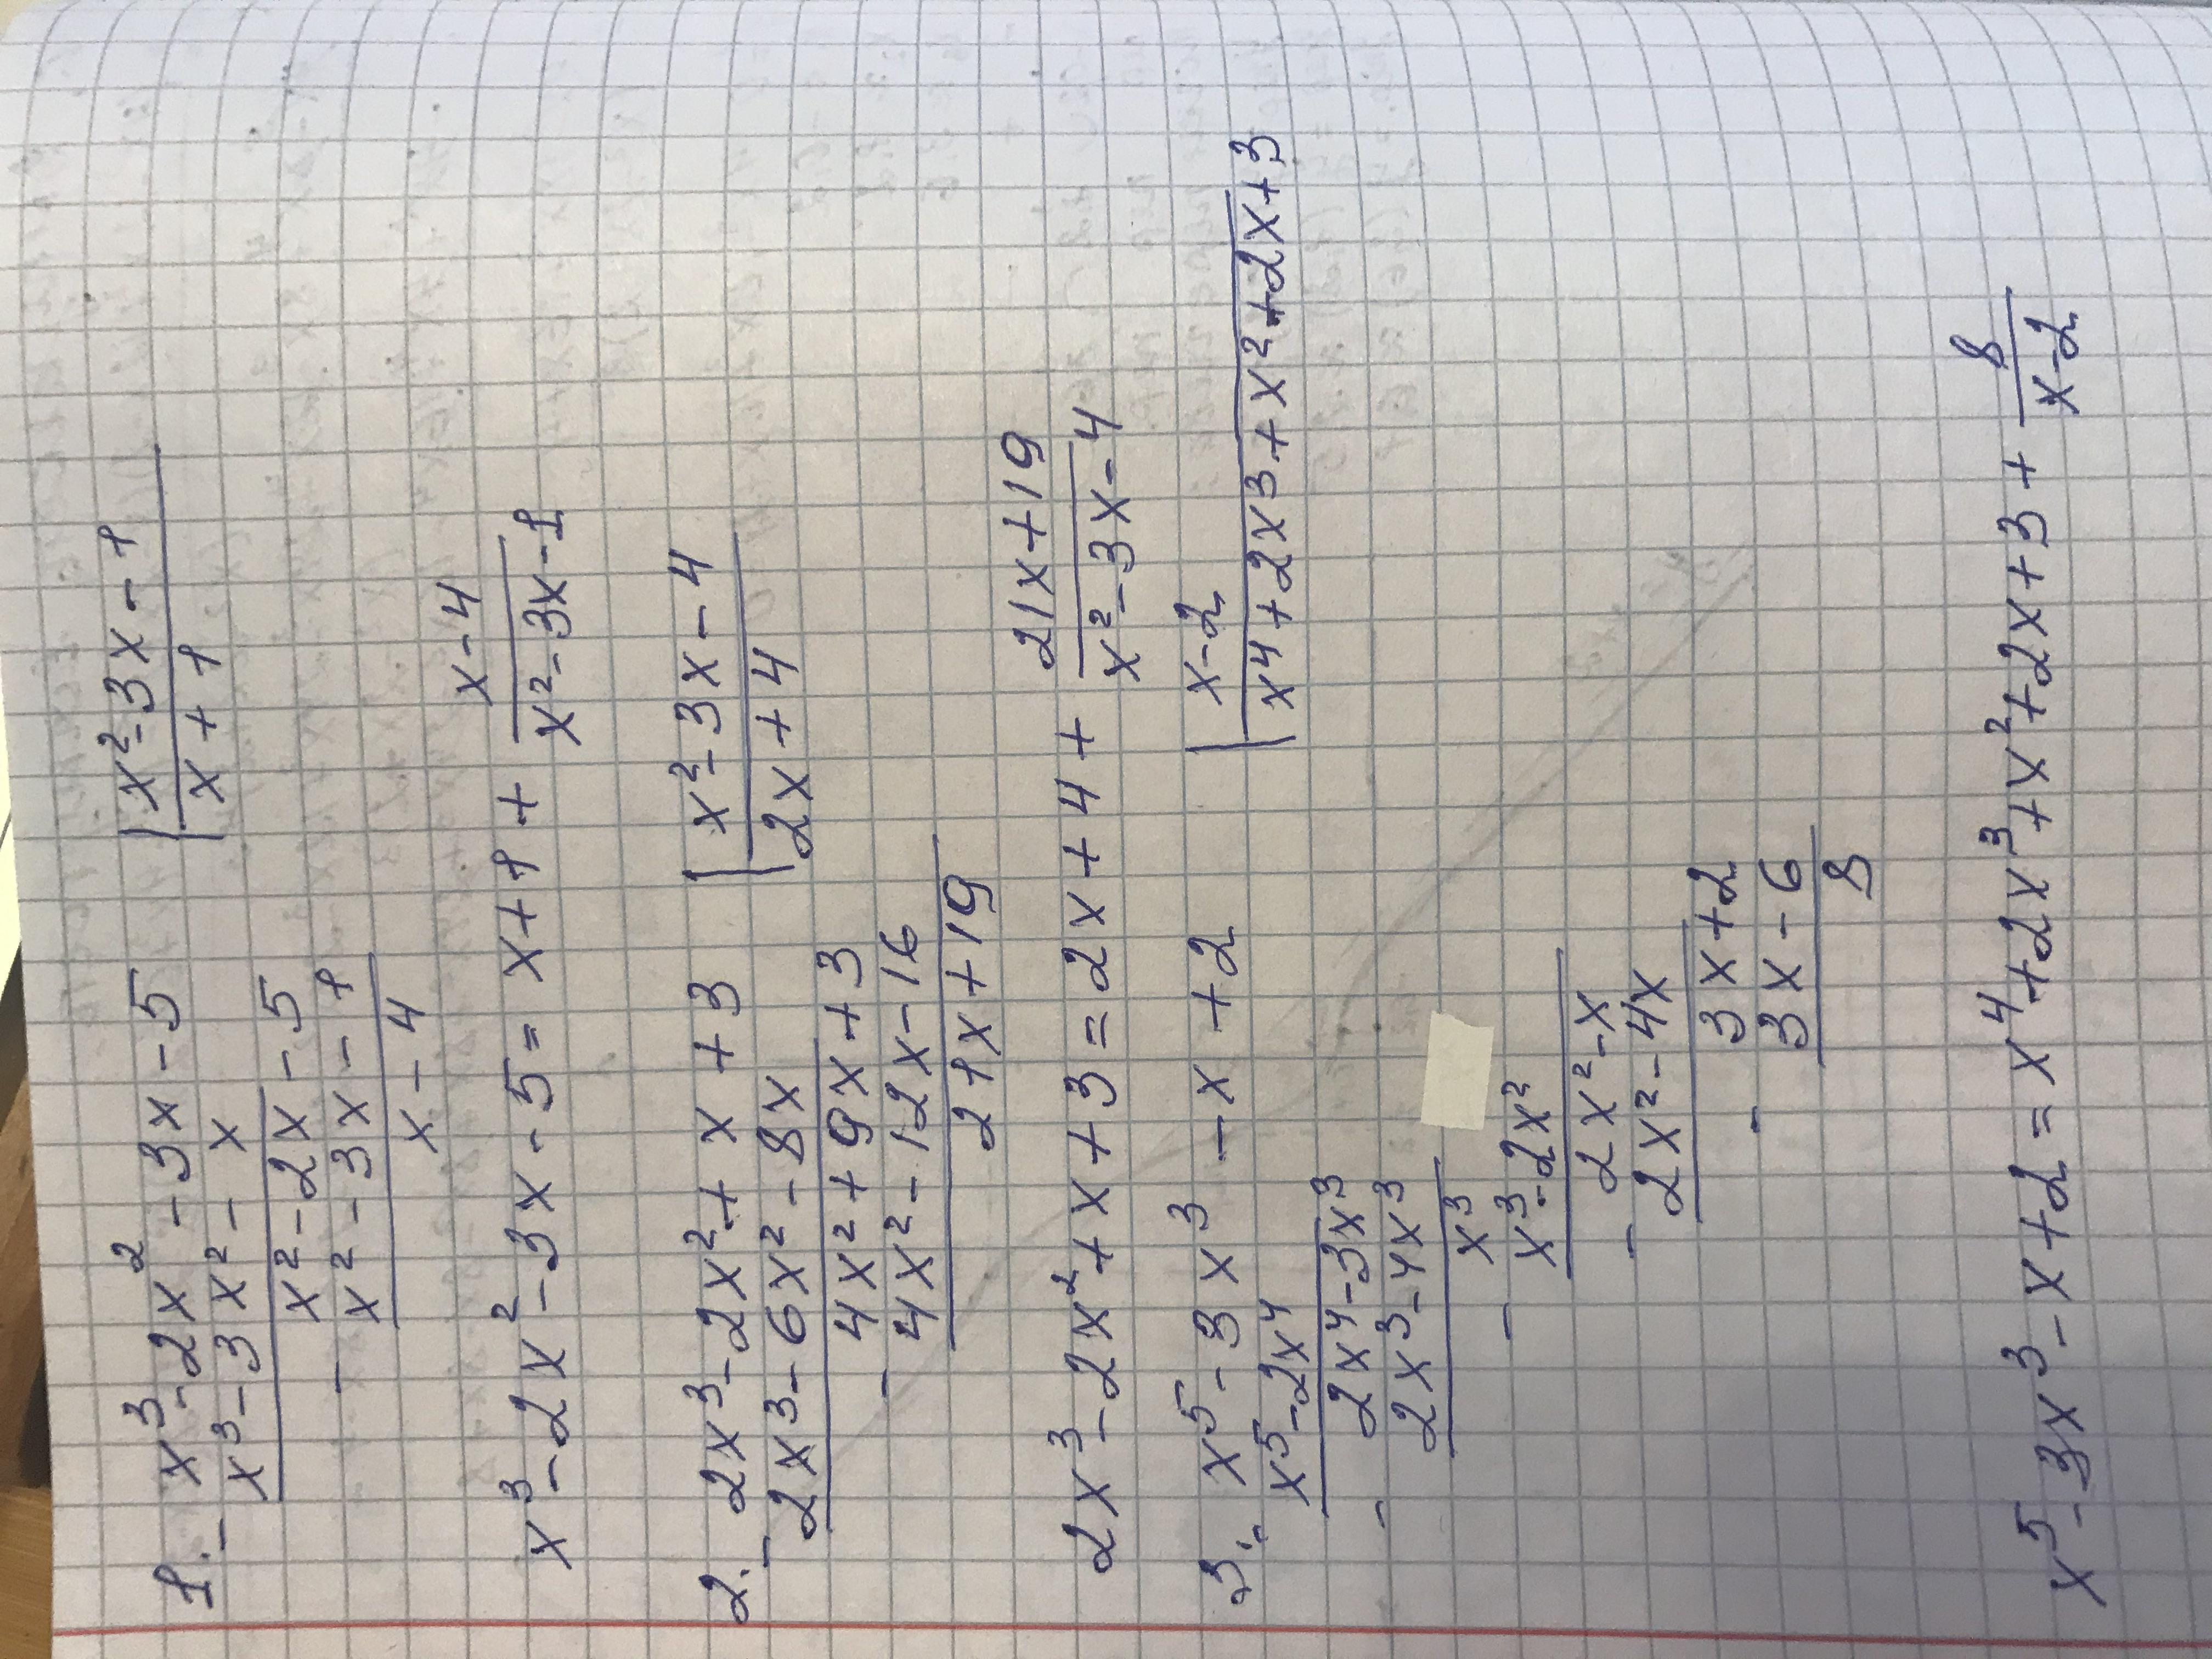 1. x³-2x²-3x-5 | x²-3x-1
- x³-3x²-x | x+1
x²-2x-5
- x²-3x-1
x-4
x³-2x²-3x-5 = x+1+ (x-4)/(x²-3x-1)
2. 2x³-2x²+x+3 | x²-3x-4
- 2x³-6x²-8x | 2x+4
4x²+9x+3
- 4x²-12x-16
21x+19
2x³-2x²+x+3=2x+4+ (21x+19)/(x²-3x-4)
3. x⁵-3x³-x+2 | x-2
- x⁵-2x⁴ | x⁴+2x³+x²+2x+3
2x⁴-3x³
- 2x³-4x³
x³
- x³-2x²
2x²-x
- 2x²-4x
3x+2
- 3x-6
8
x⁵-3x³-x+2=x⁴+2x³+x²+2x+3+ 8/(x-2)